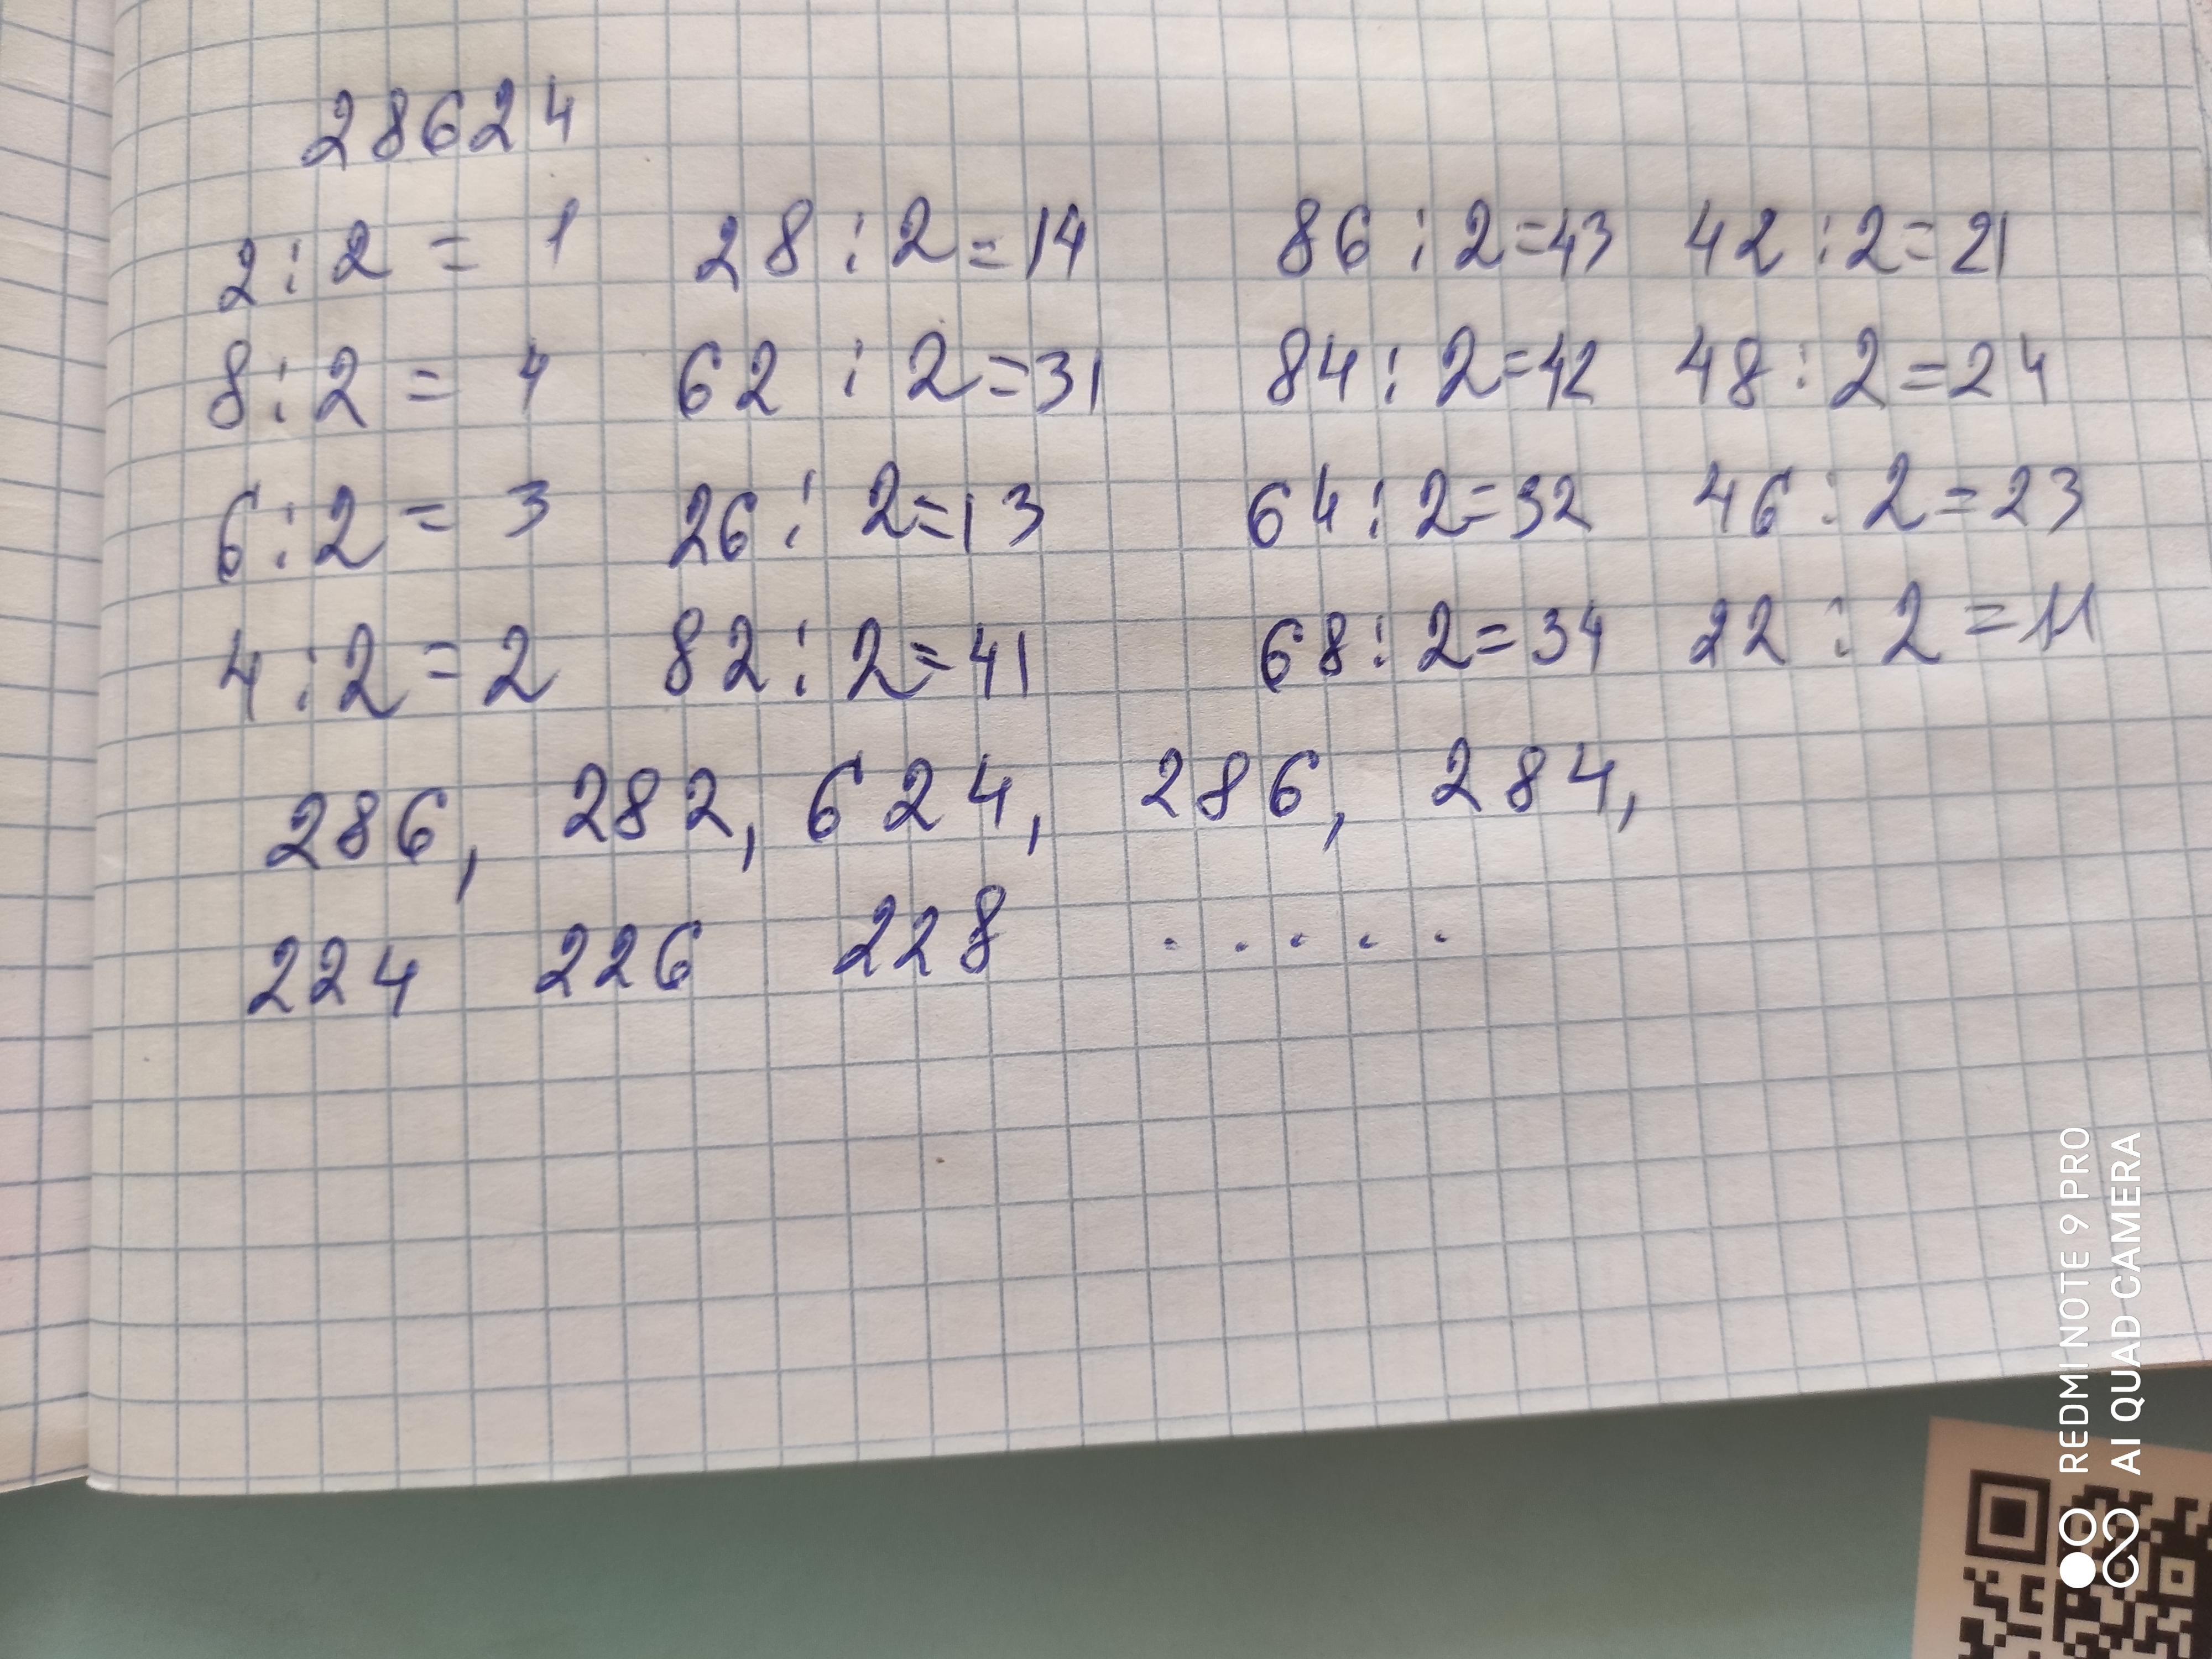 28624
2 : 2 = 1 28 : 2 = 14 86 : 2 = 43 42 : 2 = 21
8 : 2 = 4 62 : 2 = 31 84 : 2 = 42 48 : 2 = 24
6 : 2 = 3 26 : 2 = 13 64 : 2 = 32 46 : 2 = 23
4 : 2 = 2 82 : 2 = 41 68 : 2 = 34 22 : 2 = 11
286, 282, 624, 286, 284,
224 226 228 . . . . .
REDMI NOTE 9 PRO
AI QUAD CAMERA